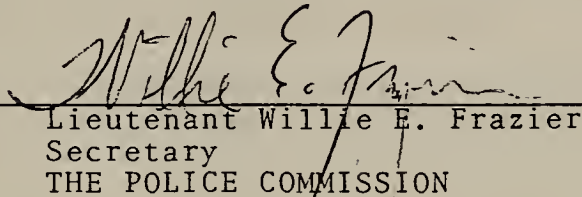 Willie E. Frazier
Lieutenant Willie E. Frazier
Secretary
THE POLICE COMMISSION